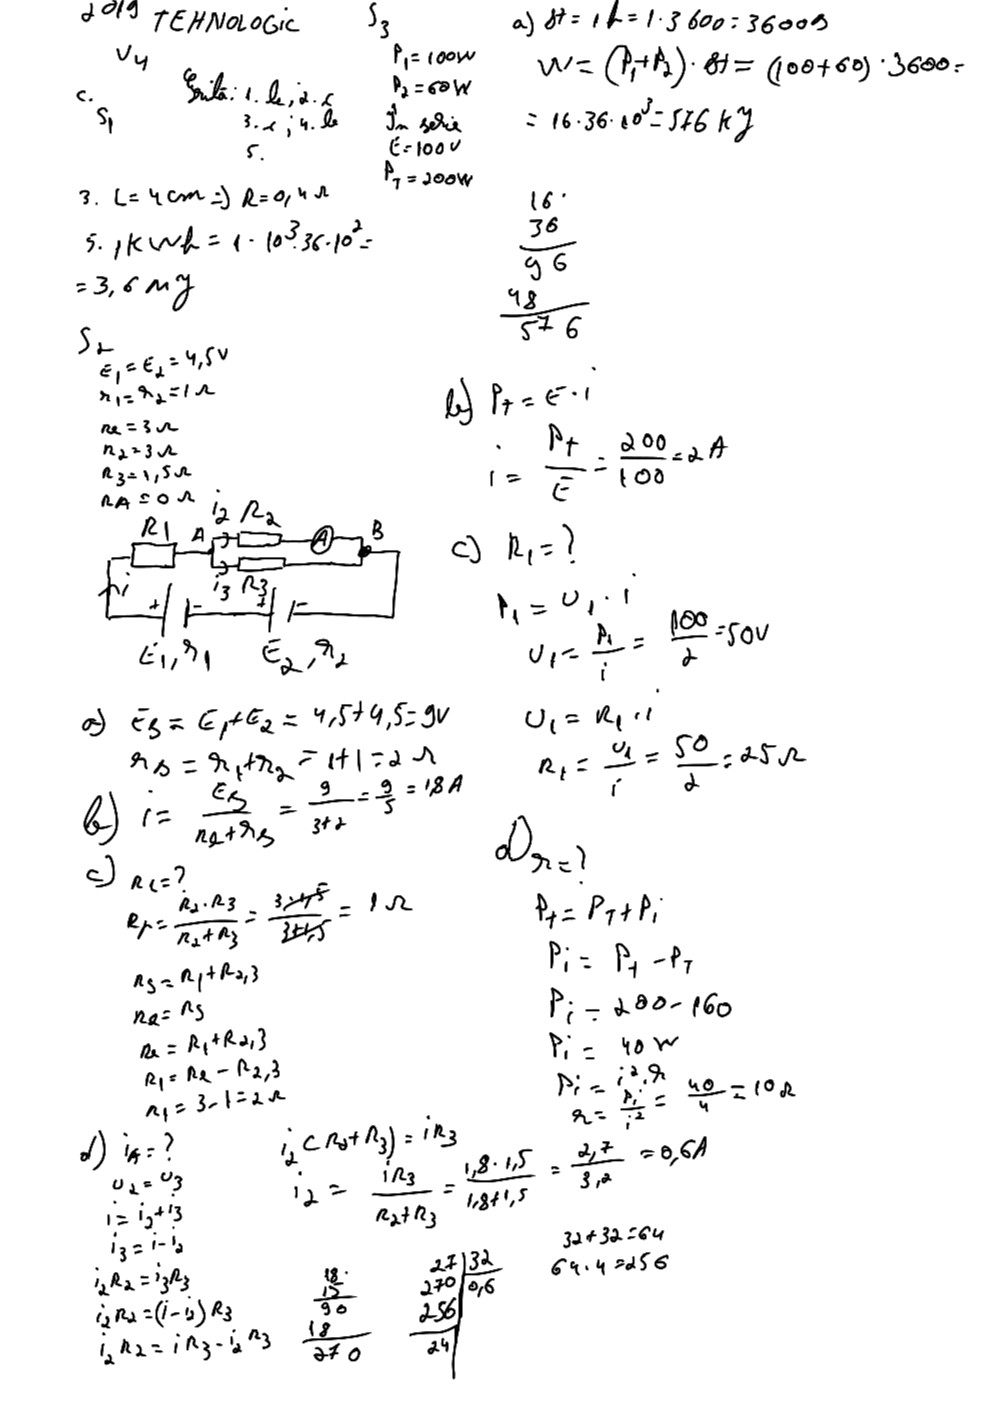 2019 TEHNOLOGIC
V4
C.
S1
Grila: 1. b; 2. c
3. c; 4. b
5.
3. L = 4cm => R = 0,4 Ω
5. 1KWh = 1 · 10³ · 36 · 10² =
= 3,6 MJ
S2
E1 = E2 = 4,5V
r1 = r2 = 1Ω
Re = 3Ω
R2 = 3Ω
R3 = 1,5Ω
RA = 0Ω
R1 A i2 R2 A B
i i3 R3
+ - + -
E1, r1 E2, r2
a) Es = E1 + E2 = 4,5 + 4,5 = 9V
rs = r1 + r2 = 1 + 1 = 2Ω
b) i = Es / (Re + rs) = 9 / (3+2) = 9/5 = 1,8A
c) R1 = ?
Rp = R2 · R3 / (R2 + R3) = 3 · 1,5 / (3 + 1,5) = 1Ω
Rs = R1 + R2,3
Re = Rs
Re = R1 + R2,3
R1 = Re - R2,3
R1 = 3 - 1 = 2Ω
d) iA = ?
U2 = U3
i = i2 + i3
i3 = i - i2
i2 R2 = i3 R3
i2 R2 = (i - i2) R3
i2 R2 = i R3 - i2 R3
i2 (R2 + R3) = i R3
i2 = i R3 / (R2 + R3) = 1,8 · 1,5 / (1,8 + 1,5) = 2,7 / 3,2 = 0,6A
18 ·
15
90
18
270
27 | 32
270 | 0,6
256
24
32 + 32 = 64
64 · 4 = 256
S3
P1 = 100W
P2 = 60W
În serie
E = 100V
PT = 200W
a) Δt = 1h = 1 · 3600 = 3600s
W = (P1 + P2) · Δt = (100 + 60) · 3600 =
= 16 · 36 · 10³ = 576 kJ
16 ·
36
96
48
576
b) Pt = E · i
i = Pt / E = 200 / 100 = 2A
c) R1 = ?
P1 = U1 · i
U1 = P1 / i = 100 / 2 = 50V
U1 = R1 · i
R1 = U1 / i = 50 / 2 = 25Ω
d) r = ?
Pt = PT + Pi
Pi = Pt - PT
Pi = 200 - 160
Pi = 40W
Pi = i² · r
r = Pi / i² = 40 / 4 = 10Ω